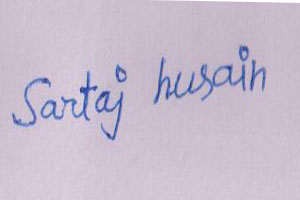 Sartaj husain